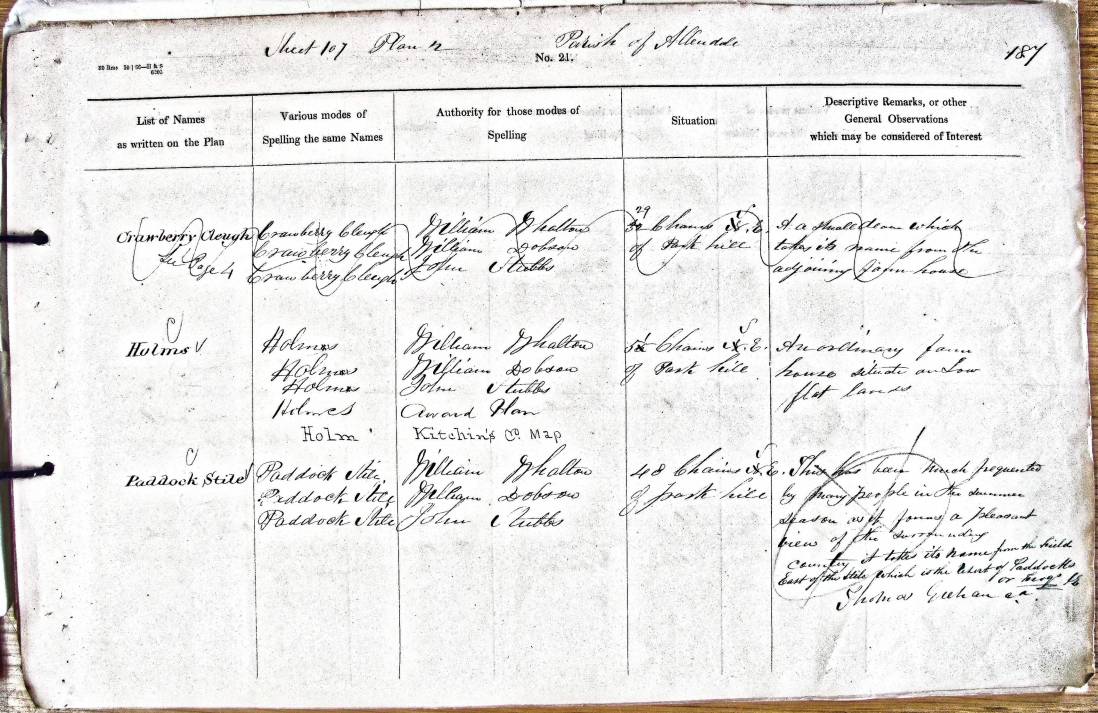 Sheet 107 Plan 2 Parish of Allendale
187
No. 21.
List of Names
as written on the Plan
Various modes of
Spelling the same Names
Authority for those modes of
Spelling
Situation
Descriptive Remarks, or other
General Observations
which may be considered of Interest
Crawberry Cleugh
See Page 4
Crawberry Cleugh
Crawberry Cleugh
Crawberry Cleugh
William Whalton
William Dobson
John Stubbs
29
Chains S.E.
of Park hill
Is a small dean which
takes its name from the
adjoining farm house
Holms
Holms
Holms
Holms
Holmes
Holm
William Whalton
William Dobson
John Stubbs
Award Plan
Kitchin's Co. Map
Chains S.E.
of Park hill
An ordinary farm
house situate on Low
flat lands
Paddock Stile
Paddock Stile
Paddock Stile
Paddock Stile
William Whalton
William Dobson
John Stubbs
48 Chains S.E.
of park hill
This has been much frequented
by many people in the summer
season as it forms a pleasant
view of the surrounding
country it takes its name from the Field
East of the Stile which is the resort of Paddocks
or Frogs
Thomas